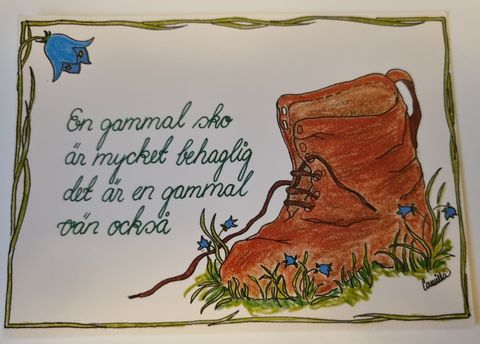 En gammal sko
är mycket behaglig
det är en gammal
vän också
Camilla